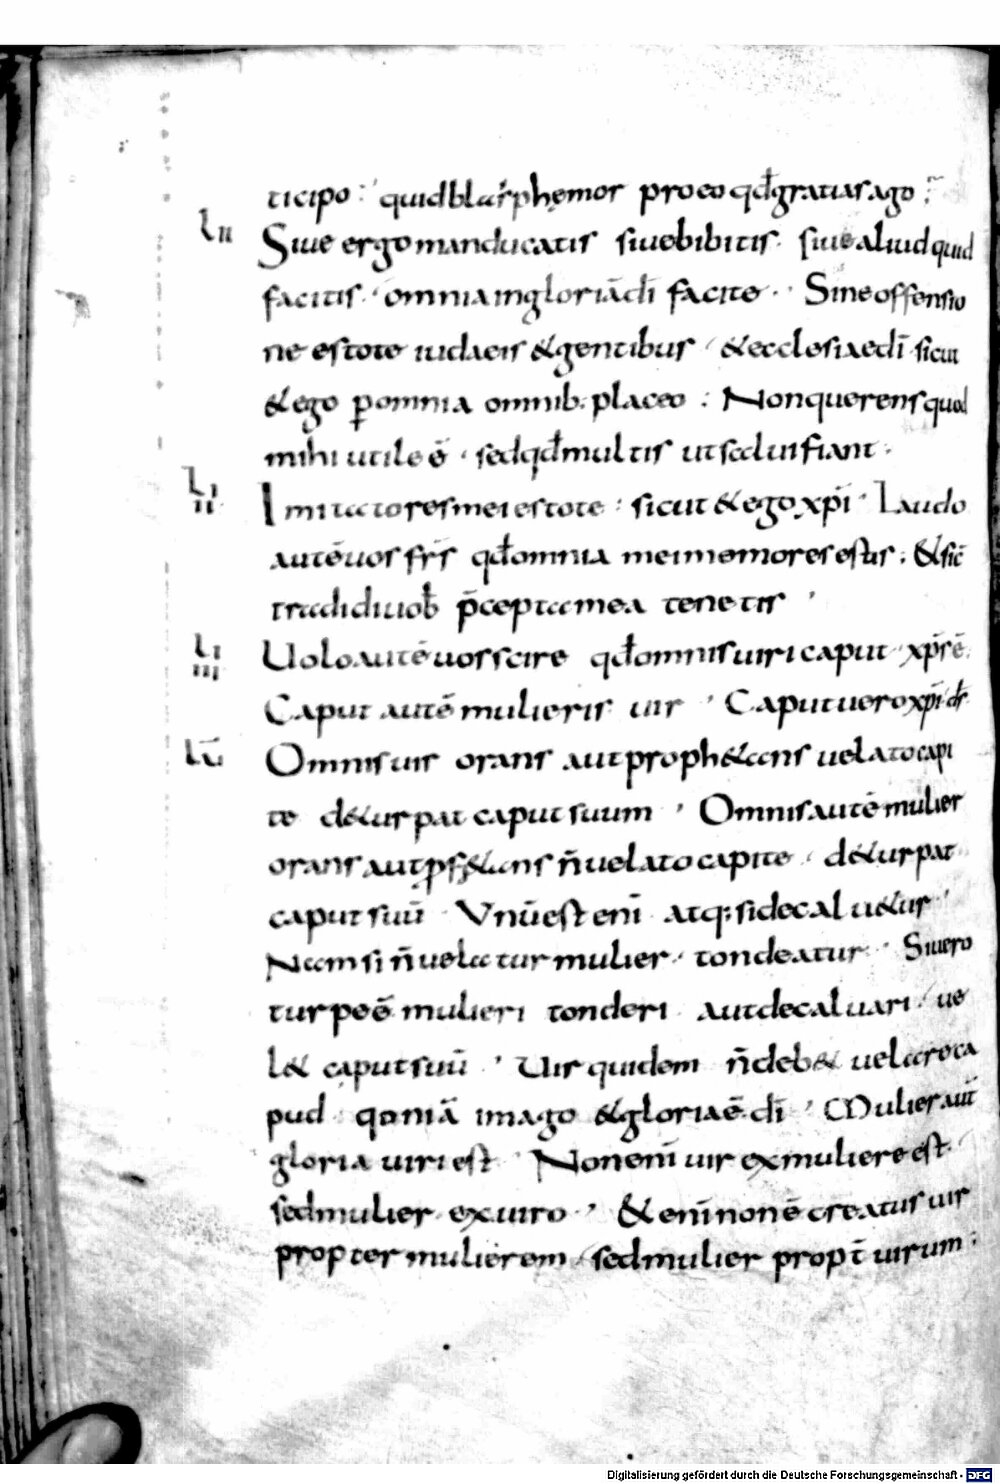 ticipo · quid blasphemor pro eo qđ gratias ago ;
Lii Siue ergo manducatis siue bibitis · siue aliud quid
facitis · omnia in gloriā dī facite · Sine offensio
ne estote iudaeis & gentibus · & ecclesiae dī sicut
& ego ꝑ omnia omnib; placeo : Non querens quod
mihi utile ē · sed qđ multis ut salui fiant ·
Lii Imitatores mei estote : sicut & ego xp̄i · Laudo
autē uos fr̄s qđ omnia mei memores estis ; & sic̄
tradidi uob̄ p̄cepta mea tenetis
Liii Uolo autē uos scire qđ omnis uiri caput xp̄s ē ·
Caput autē mulieris uir · Caput uero xp̄i ds̄
Omnis uir orans aut proph&ans uelato capi
te d&urpat caput suum · Omnis autē mulier
orans aut proph&ans n̄ uelato capite · d&urpat
caput suū · Vnū est enī atq; si decalu&ur ·
Nam si n̄ uelatur mulier · tondeatur · Si uero
turpe ē mulieri tonderi aut decaluari · ue
l& caput suū · Uir quidem n̄ deb& uelare ca
pud qūoniā imago & gloria ē dī · Mulier aut̄
gloria uiri est · Non enī uir ex muliere est ·
sed mulier ex uiro · & enī non ē creatus uir
propter mulierem · sed mulier propt̄ uirum ;
Digitalisierung gefördert durch die Deutsche Forschungsgemeinschaft - DFG